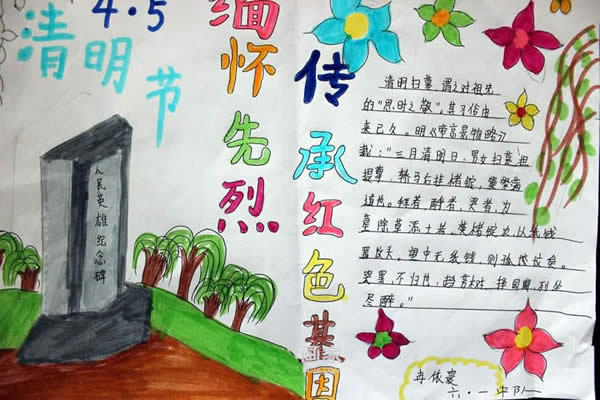 4.5
清明节
缅怀先烈
传承红色基因
人民英雄纪念碑
清明扫墓，谓之对祖先
的"思时之敬"。其习俗由
来已久。明《帝京景物略》
载："三月清明日，男女扫墓，担
提尊，轿马后挂楮锭，粲粲然满
道也。拜者、酹者、哭者、为
墓除草添土者，焚楮锭次，以纸钱
置坟头。望中无纸钱，则孤坟矣。
哭罢，不归也，趋芳树，择园圃，列坐
尽醉。"
冉依宸
六·一中队